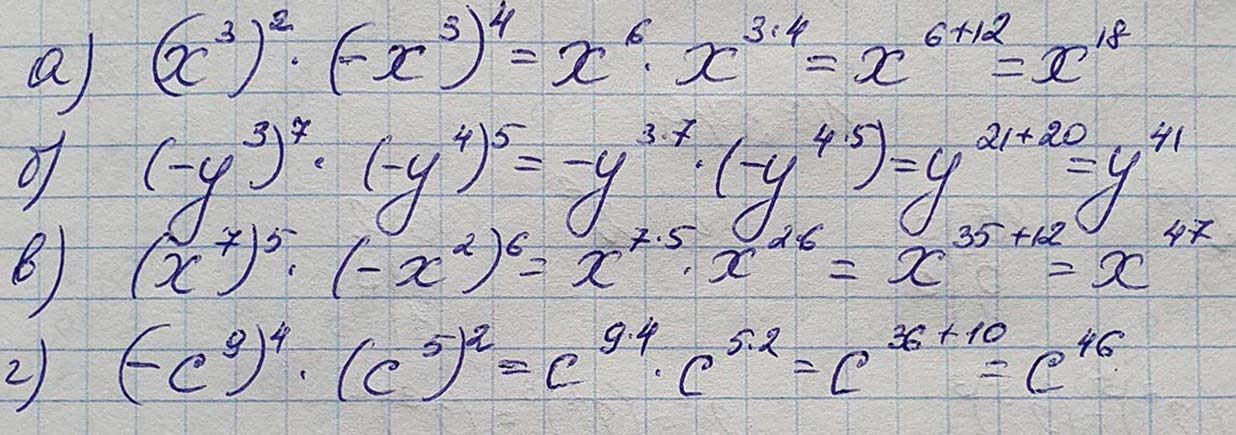 а) (x³)² · (-x³)⁴ = x⁶ · x³·⁴ = x⁶⁺¹² = x¹⁸
б) (-y³)⁷ · (-y⁴)⁵ = -y³·⁷ · (-y⁴·⁵) = y²¹⁺²⁰ = y⁴¹
в) (x⁷)⁵ · (-x²)⁶ = x⁷·⁵ · x²·⁶ = x³⁵⁺¹² = x⁴⁷
г) (-c⁹)⁴ · (c⁵)² = c⁹·⁴ · c⁵·² = c³⁶⁺¹⁰ = c⁴⁶